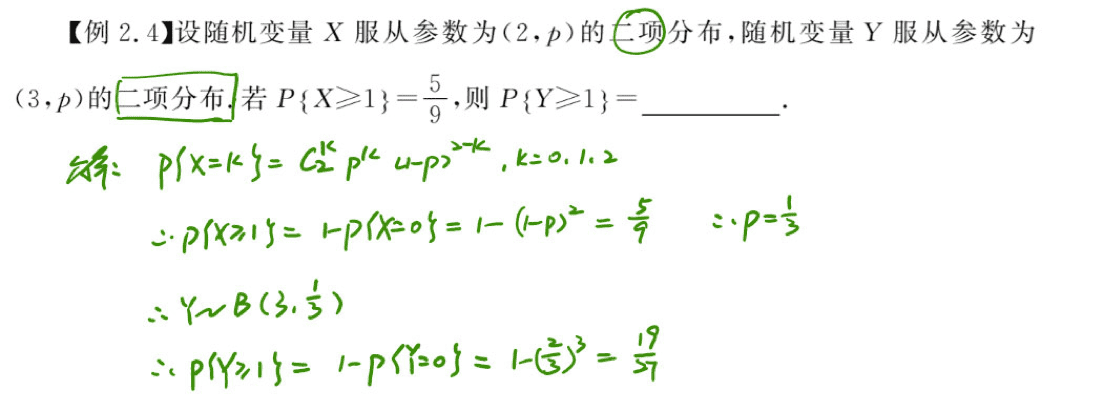 【例 2.4】设随机变量 X 服从参数为(2,p)的二项分布,随机变量 Y 服从参数为
(3,p)的二项分布.若 P{X≥1}=5/9,则 P{Y≥1}=________.
解: P{X=k}= C₂ᵏ pᵏ (1-p)²⁻ᵏ , k=0,1,2
∴P{X≥1}= 1-P{X=0}= 1-(1-p)² = 5/9 ∴p=1/3
∴Y~B(3,1/3)
∴P{Y≥1}= 1-P{Y=0}= 1-(2/3)³ = 19/27